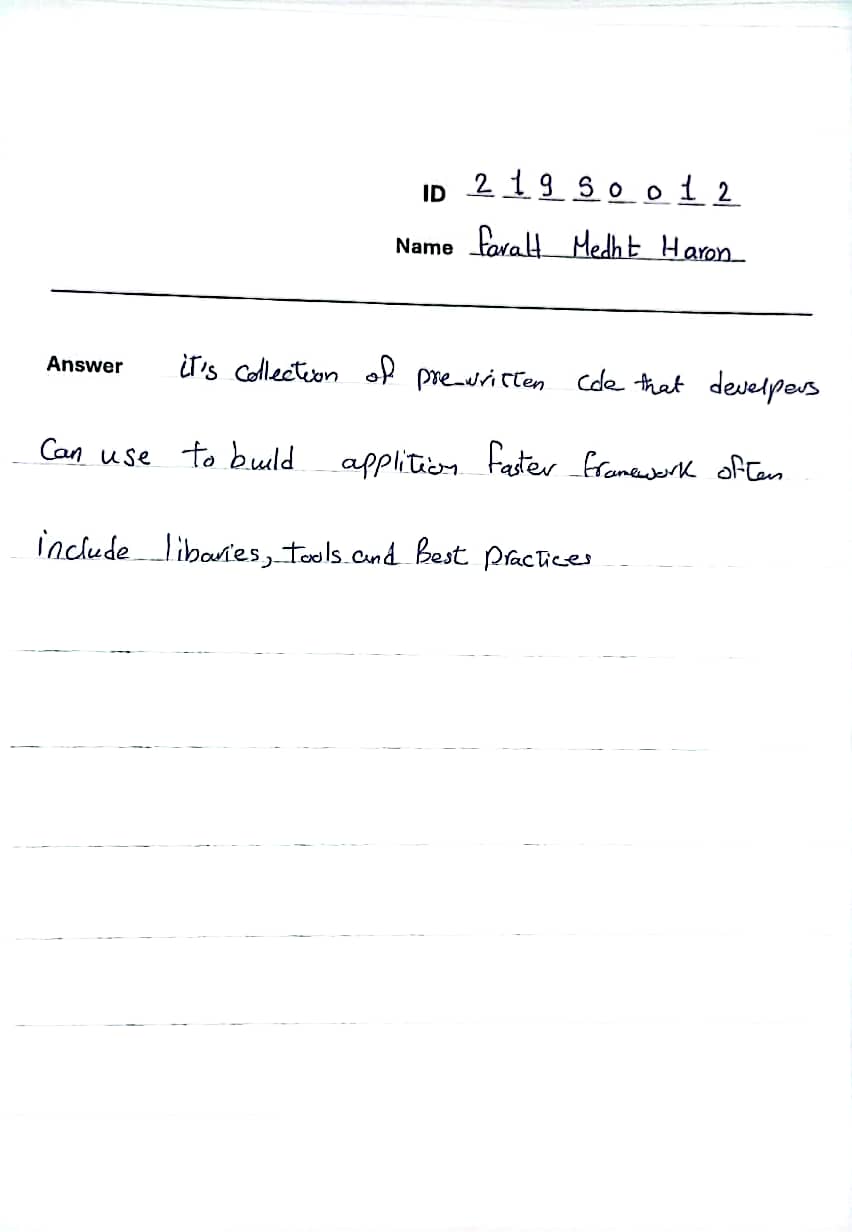 ID 2 1 9 5 0 0 1 2
Name Farah Medht Haron
Answer it's collection of pre-written cde that develpers
Can use to build applition faster framework often
include libaries, tools and Best practices